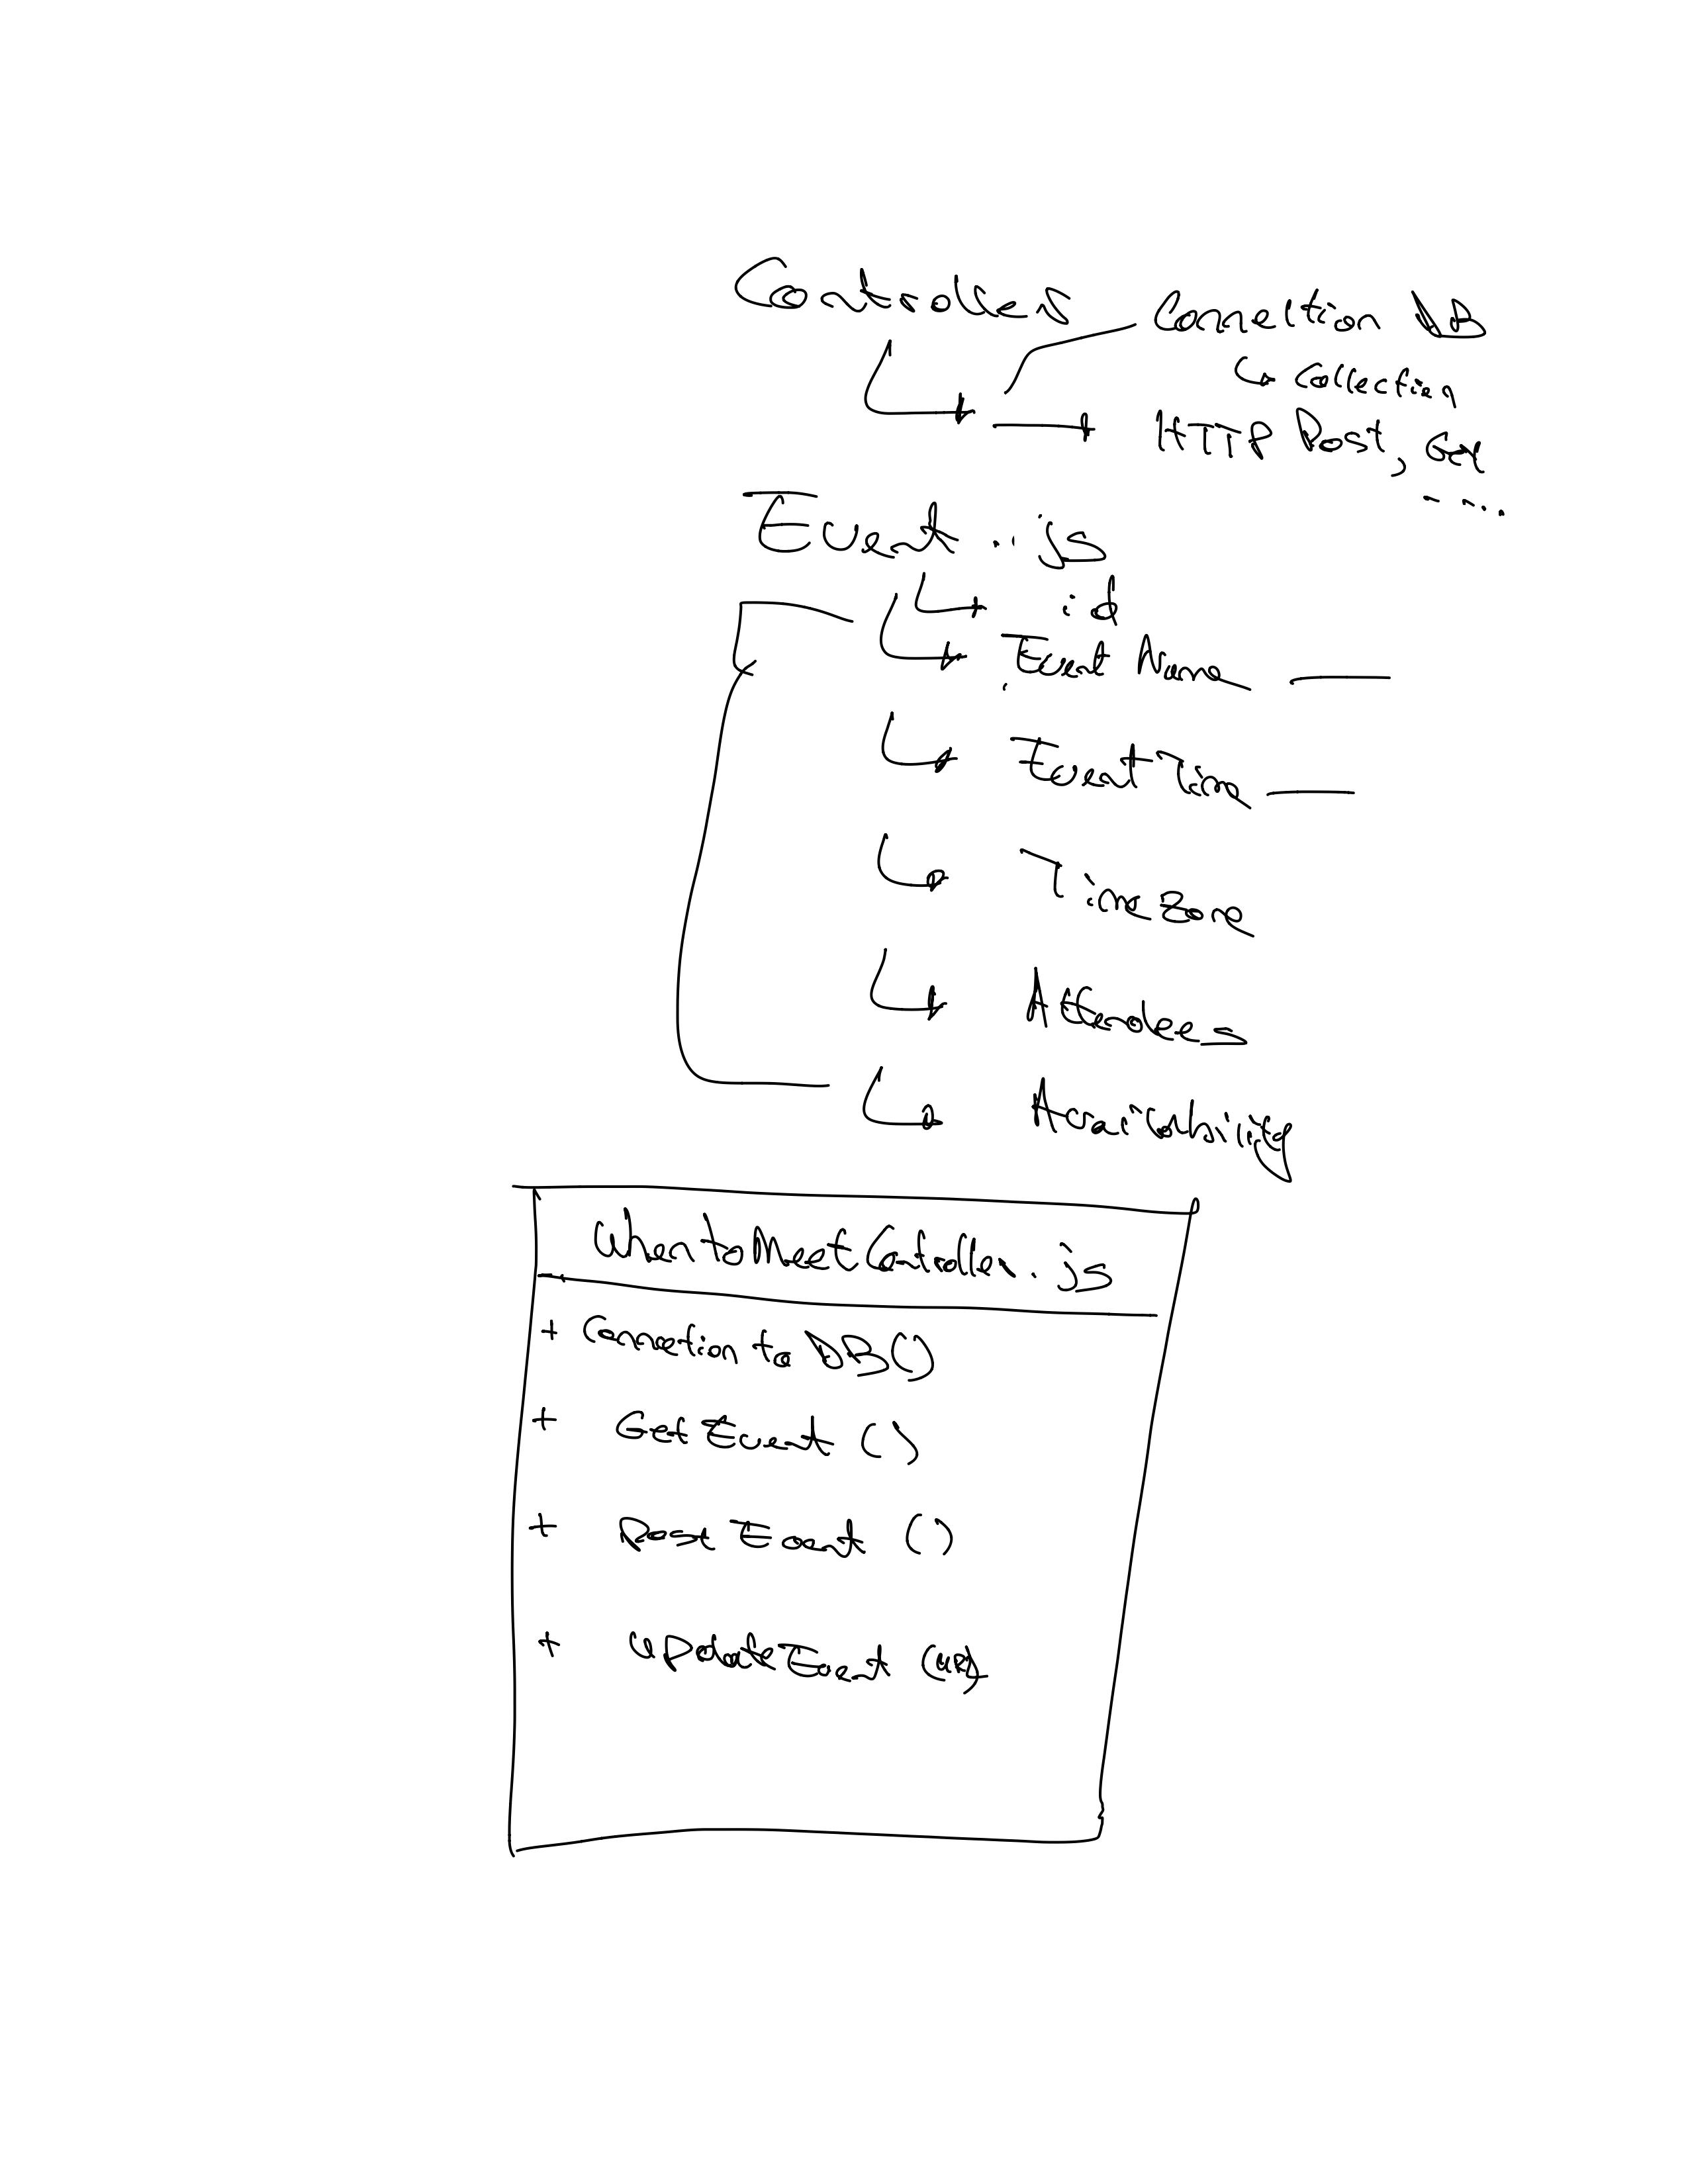 Controller
Connection DB
Collection
HTTP Post, Get
....
Event .js
id
Event Name
Event Time
Time Zone
Attendees
Availability
WhentoMeetController.js
+ Connection to DB()
+ Get Event ()
+ Post Event ()
+ UpdateEvent ()